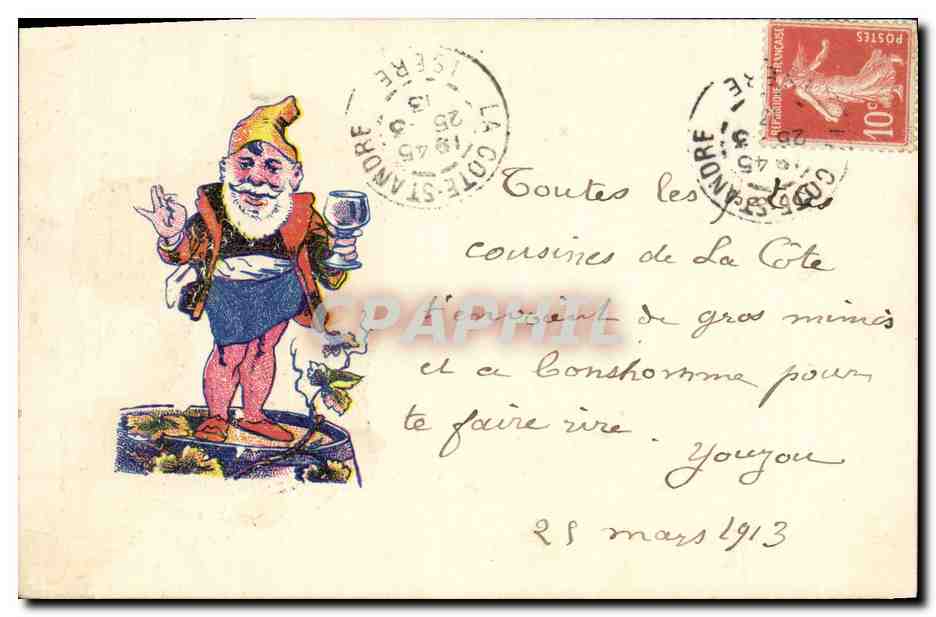 LA COTE-ST ANDRE
19 45
25 - 3
13
ISERE
REPUBLIQUE FRANÇAISE
POSTES
10c
ST ANDRE
19 45
25 3
Toutes les
cousines de La Côte
t'envoient de gros mimis
et ce bonshomme pour
te faire rire.
Youyou
25 mars 1913
CPAPHIL